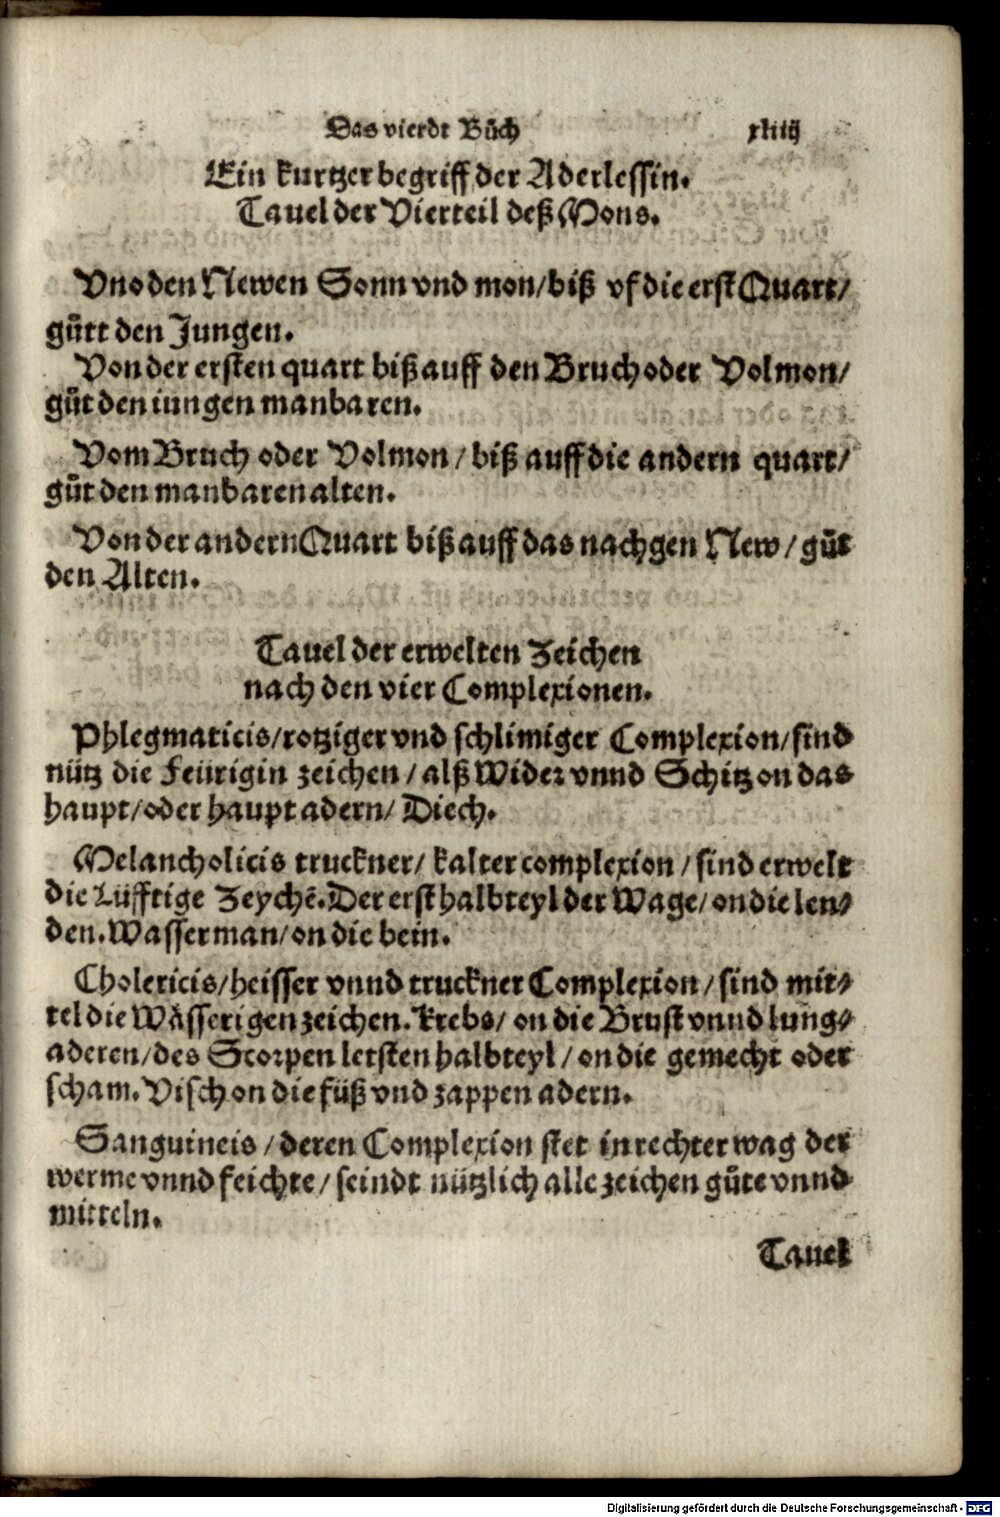 Das vierdt Bůch xliiij
Ein kurtzer begriff der Aderlessin.
Tauel der Vierteil deß Mons.
Vno den Newen Sonn vnd mon/biß vf die erst Quart/
gůtt den Jungen.
Von der ersten quart biß auff den Bruch oder Volmon/
gůt den iungen manbaren.
Vom Bruch oder Volmon/biß auff die andern quart/
gůt den manbaren alten.
Von der andern Quart biß auff das nachgen New/gůt
den Alten.
Tauel der erwelten Zeichen
nach den vier Complexionen.
Phlegmaticis/rotziger vnd schlimiger Complexion/sind
nütz die Feürigin zeichen/alß Wider vnnd Schitz on das
haupt/oder haupt adern/Diech.
Melancholicis truckner/kalter complexion/sind erwelt
die Lüfftige Zeychē.Der erst halbteyl der Wage/on die len⸗
den.Wasserman/on die bein.
Cholericis/heisser vnnd truckner Complexion/sind mit⸗
tel die Wåsserigen zeichen.Krebs/on die Brust vnnd lung⸗
aderen/des Scorpen letsten halbteyl/on die gemecht oder
scham.Visch on die füß vnd zappen adern.
Sanguineis/deren Complexion stet in rechter wag der
werme vnnd feichte/seindt nützlich alle zeichen gůte vnnd
mitteln.
Tauel
Digitalisierung gefördert durch die Deutsche Forschungsgemeinschaft - DFG